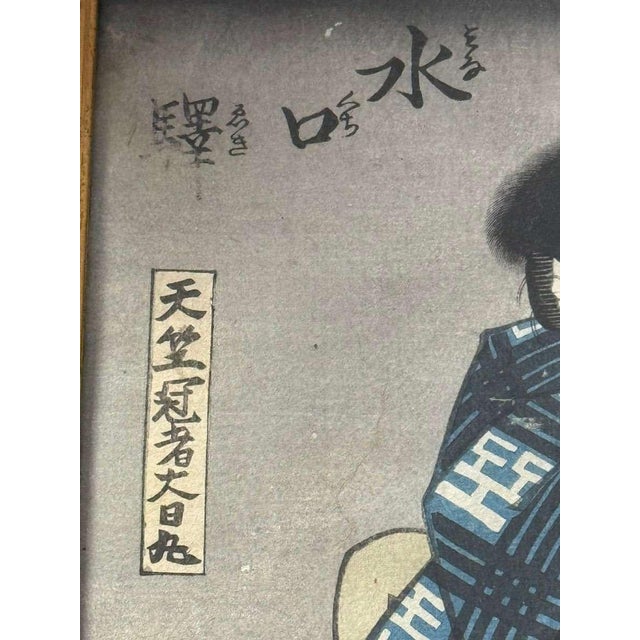 水口驛
みなくちゑき
天竺冠者大日丸